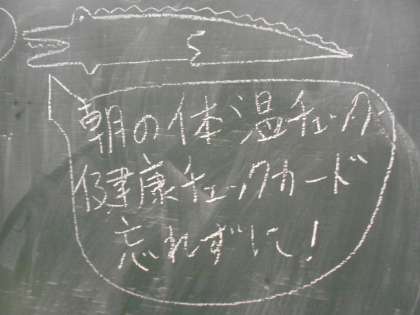 朝の体温チェック
健康チェックカード
忘れずに!